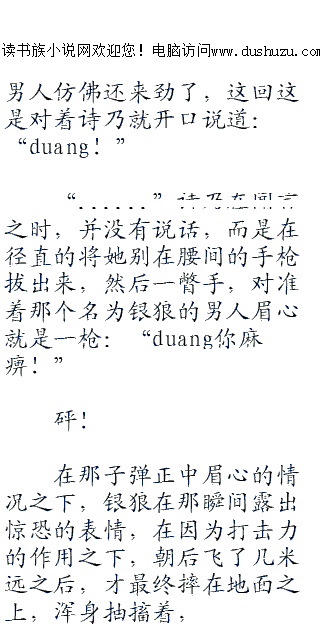 读书族小说网欢迎您！电脑访问www.dushuzu.com
男人仿佛还来劲了，这回这
是对着诗乃就开口说道：
“duang！”
“......”诗乃在闻言
之时，并没有说话，而是在
径直的将她别在腰间的手枪
拔出来，然后一瞥手，对准
着那个名为银狼的男人眉心
就是一枪：“duang你麻
痹！”
砰！
在那子弹正中眉心的情
况之下，银狼在那瞬间露出
惊恐的表情，在因为打击力
的作用之下，朝后飞了几米
远之后，才最终摔在地面之
上，浑身抽搐着，